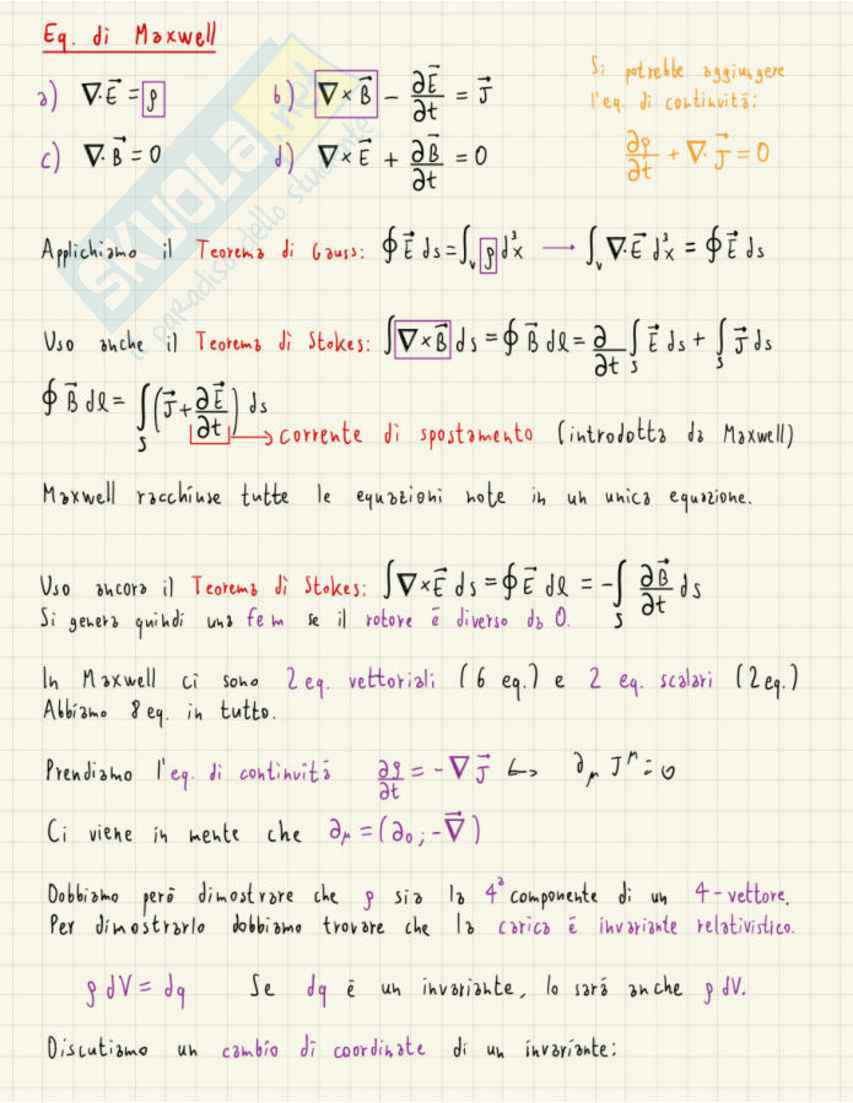 Eq. di Maxwell
a) ∇·E⃗ = ρ b) ∇×B⃗ − ∂E⃗/∂t = J⃗
c) ∇·B⃗ = 0 d) ∇×E⃗ + ∂B⃗/∂t = 0
Si potrebbe aggiungere
l'eq. di continuitá:
∂ρ/∂t + ∇·J⃗ = 0
Applichiamo il Teorema di Gauss: ∮E⃗ ds = ∫_v ρ d³x → ∫_v ∇·E⃗ d³x = ∮E⃗ ds
Uso anche il Teorema di Stokes: ∫∇×B⃗ ds = ∮B⃗ dl = ∂/∂t ∫_S E⃗ ds + ∫_S J⃗ ds
∮B⃗ dl = ∫_S (J⃗ + ∂E⃗/∂t) ds
→ corrente di spostamento (introdotta da Maxwell)
Maxwell racchiuse tutte le equazioni note in un unica equazione.
Uso ancora il Teorema di Stokes: ∫∇×E⃗ ds = ∮E⃗ dl = −∫_S ∂B⃗/∂t ds
Si genera quindi una fem se il rotore é diverso da 0.
In Maxwell ci sono 2 eq. vettoriali (6 eq.) e 2 eq. scalari (2 eq.)
Abbiamo 8 eq. in tutto.
Prendiamo l'eq. di continuitá ∂ρ/∂t = −∇J⃗ ↳ ∂_μ J^μ = 0
Ci viene in mente che ∂_μ = (∂₀; −∇⃗)
Dobbiamo peró dimostrare che ρ sia la 4ª componente di un 4-vettore.
Per dimostrarlo dobbiamo trovare che la carica é invariante relativistico.
ρ dV = dq Se dq é un invariante, lo sará anche ρ dV.
Discutiamo un cambio di coordinate di un invariante:
SKUOLA.net
il paradiso dello studente